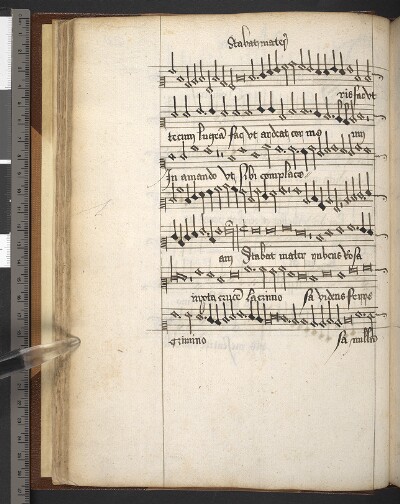 Stabat mater
ris fac vt
tecum lugeā fac vt ardeat cor meu
In amando vt sibi complace
am Stabat mater rubens rosa
iuxta crucē lacrimo sa videns ferre
crimino sa nullā